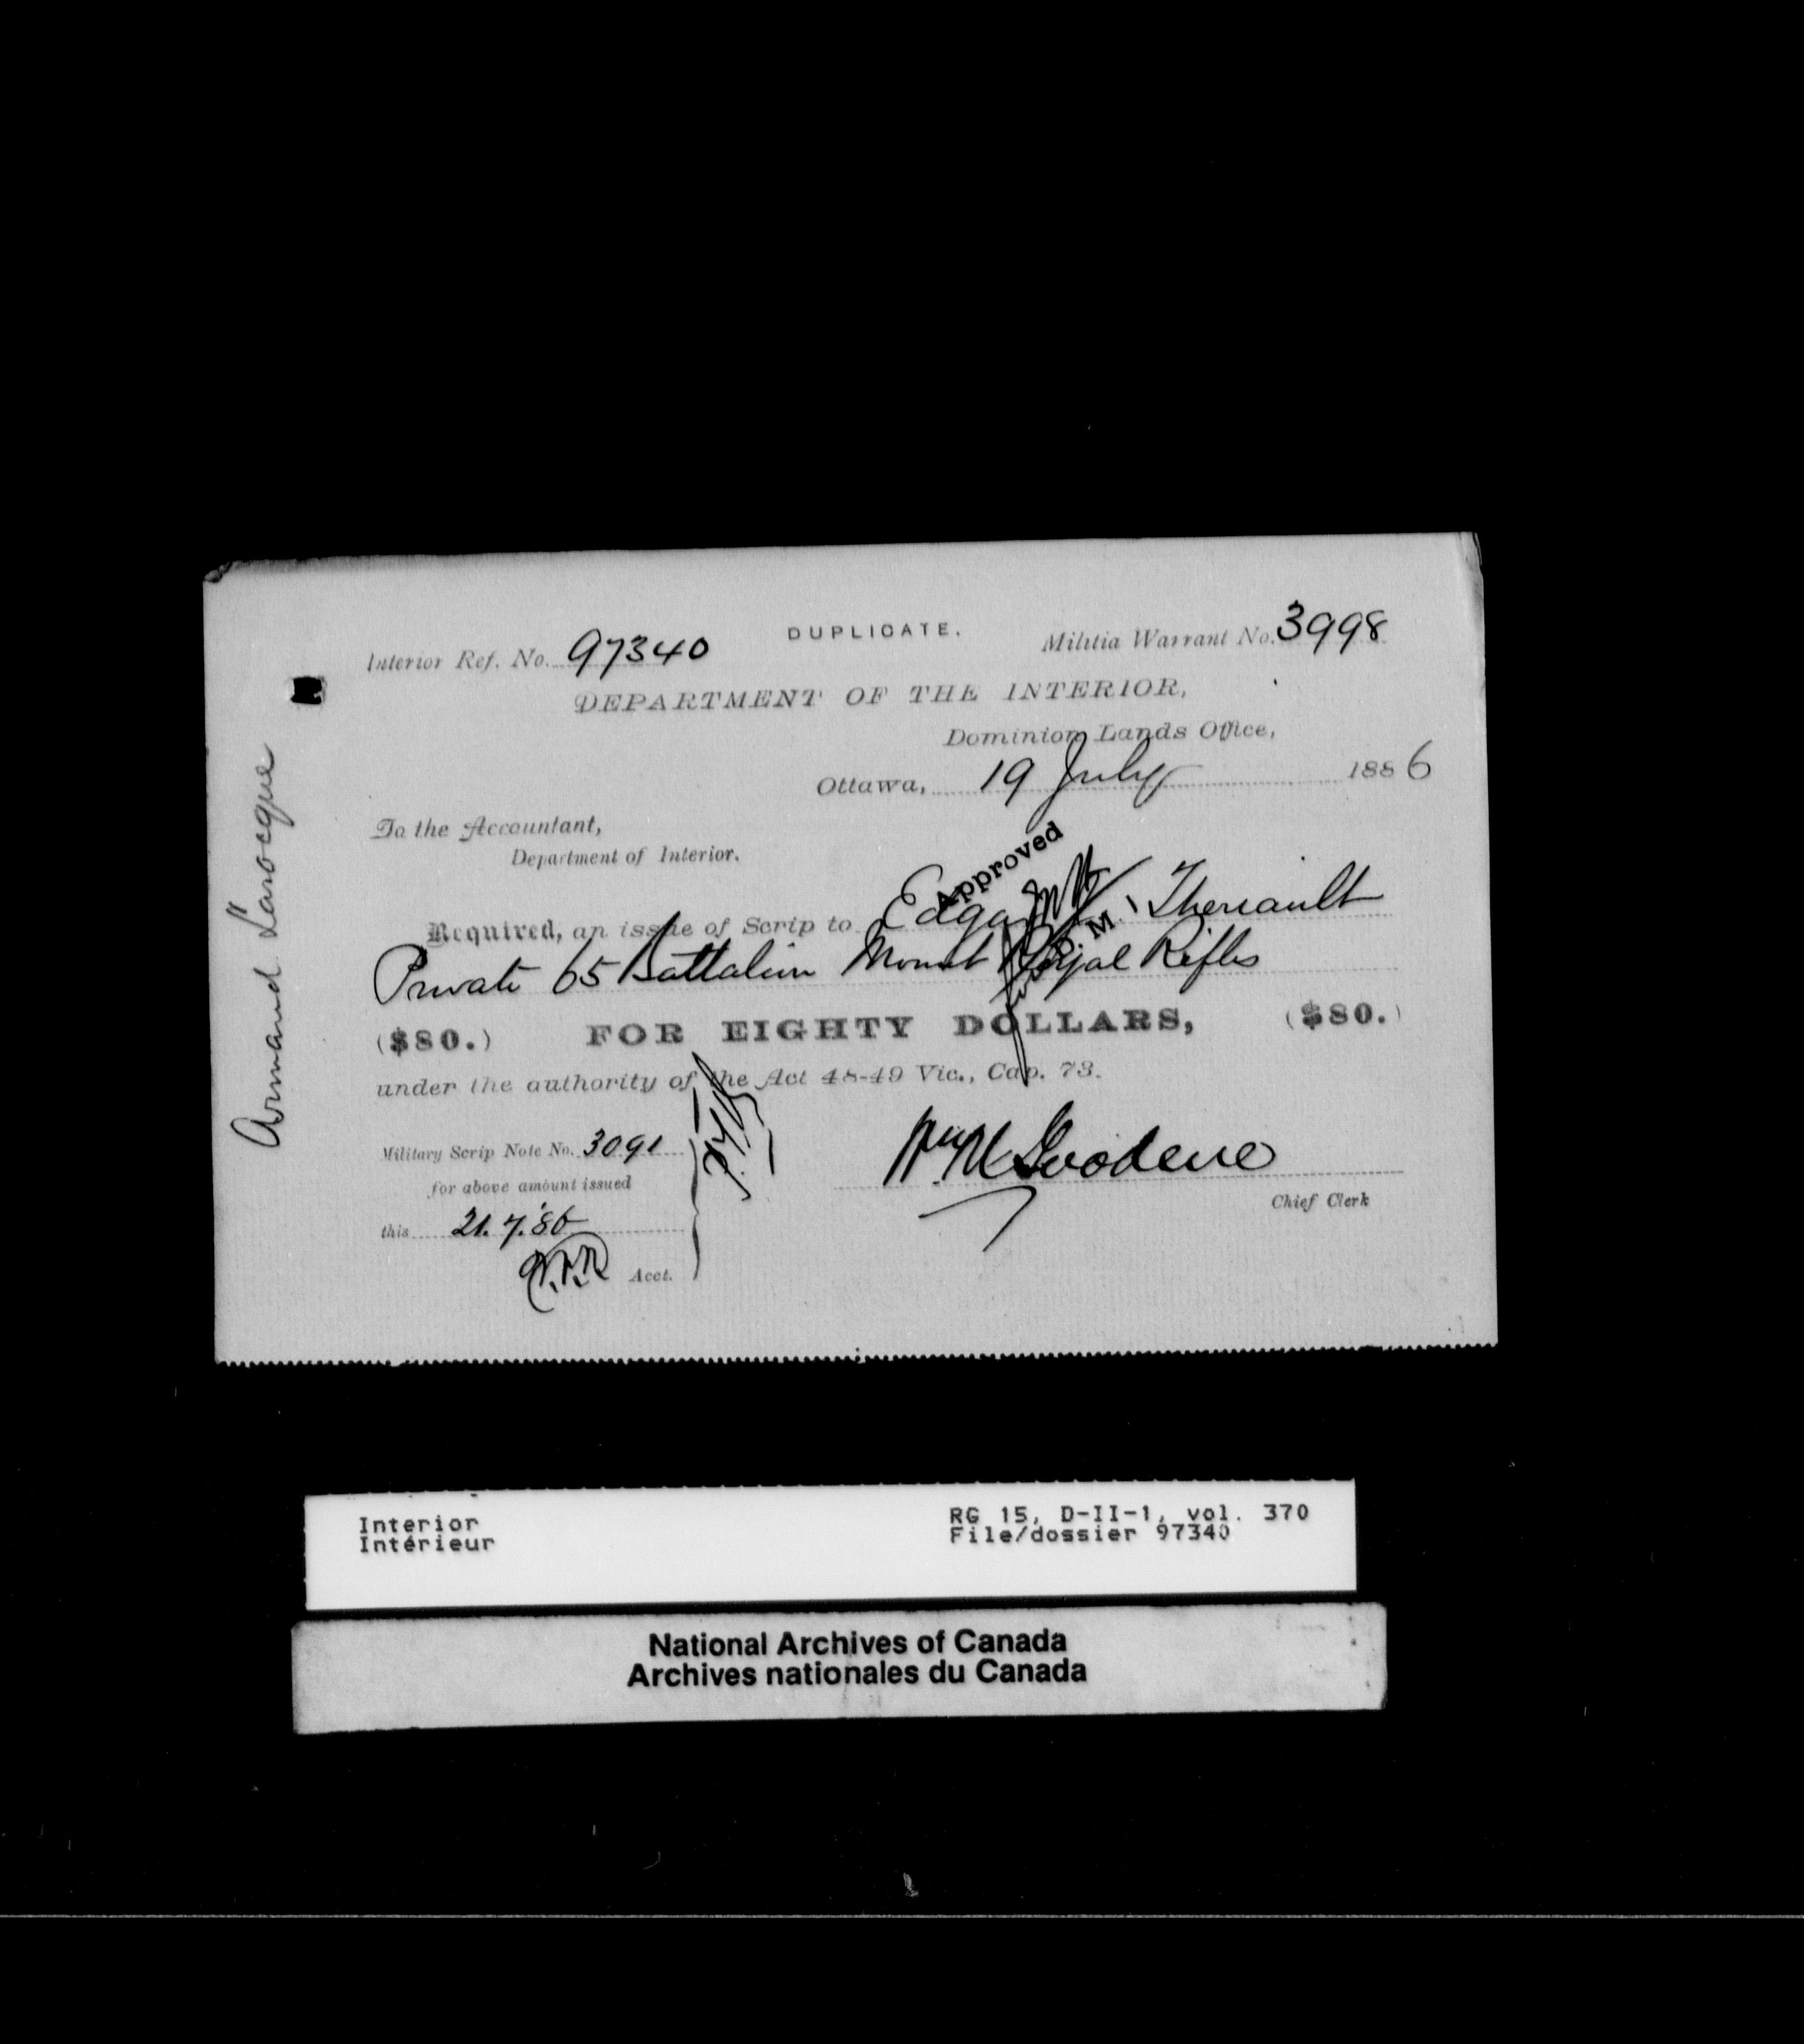 DUPLICATE.
Interior Ref. No. 97340
Militia Warrant No. 3998
DEPARTMENT OF THE INTERIOR,
Dominion Lands Office,
Ottawa, 19 July 1886
To the Accountant,
Department of Interior.
Approved
Required, an issue of Scrip to Edgar Theriault
Private 65 Battalion Mount Royal Rifles
($80.) FOR EIGHTY DOLLARS, ($80.)
under the authority of the Act 48-49 Vic., Cap. 73.
Military Scrip Note No. 3091
for above amount issued
this 21.7.'86
Acct.
Chief Clerk
Armand Larocque
Interior
Intérieur
RG 15, D-II-1, vol. 370
File/dossier 97340
National Archives of Canada
Archives nationales du Canada